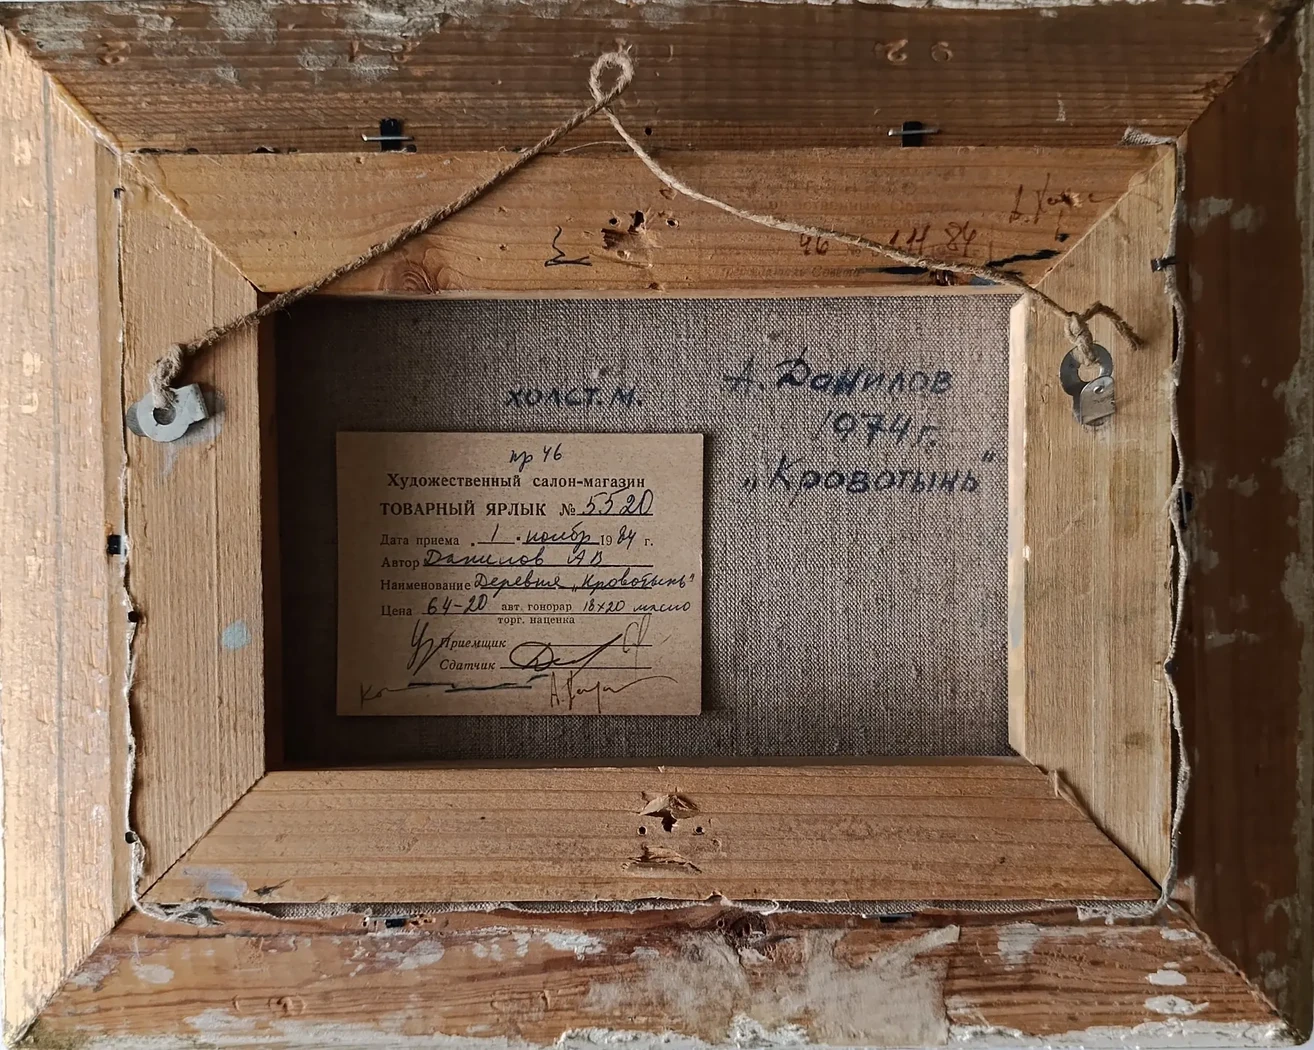 46 1.11.84
холст. м.
А. Данилов
1974 г.
„Кровотынь"
пр 46
Художественный салон-магазин
ТОВАРНЫЙ ЯРЛЫК № 5520
Дата приема „ 1 " ноябр 1984 г.
Автор Данилов АВ
Наименование Деревня „Кровотынь"
Цена 64-20 авт. гонорар 18х20 масло
торг. наценка
Приемщик
Сдатчик